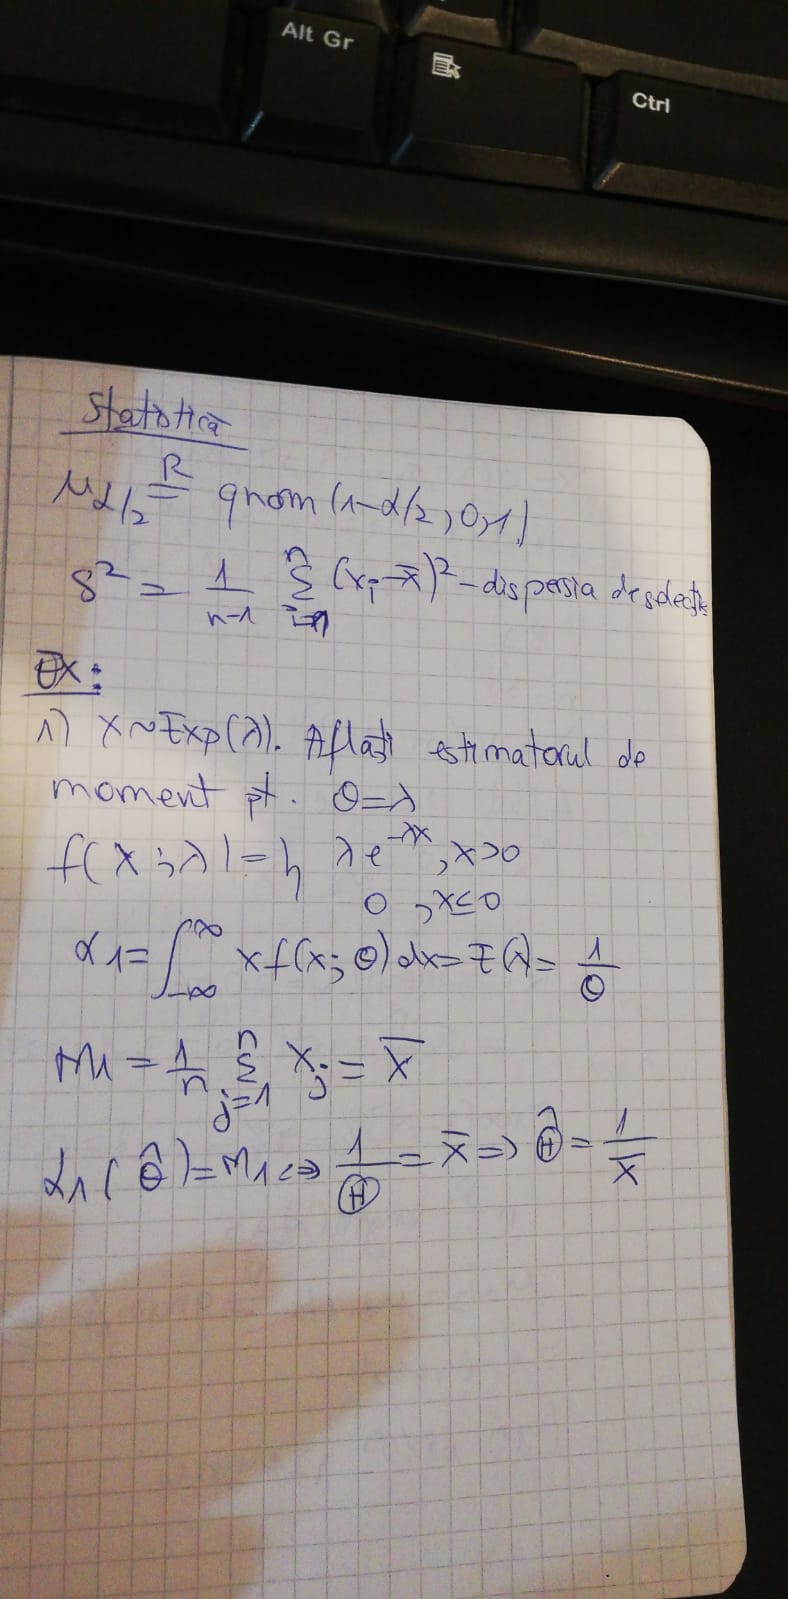 Alt Gr
Ctrl
Statistică
μα/2 =R qnom(1-α/2, 0, 1)
s² = 1/(n-1) Σ_{i=1}^{n} (xi - x̄)² - dispersia de selecție
Ex:
1) X~Exp(λ). Aflați estimatorul de
moment pt. θ=λ
f(x;λ)={ λe^{-λx}, x>0
0, x≤0
α1= ∫_{-∞}^{∞} x f(x;θ) dx = E(X) = 1/θ
m1 = 1/n Σ_{j=1}^{n} xj = x̄
α1(θ̂)=m1 <=> 1/Ⓗ = x̄ => Ⓗ̂ = 1/x̄